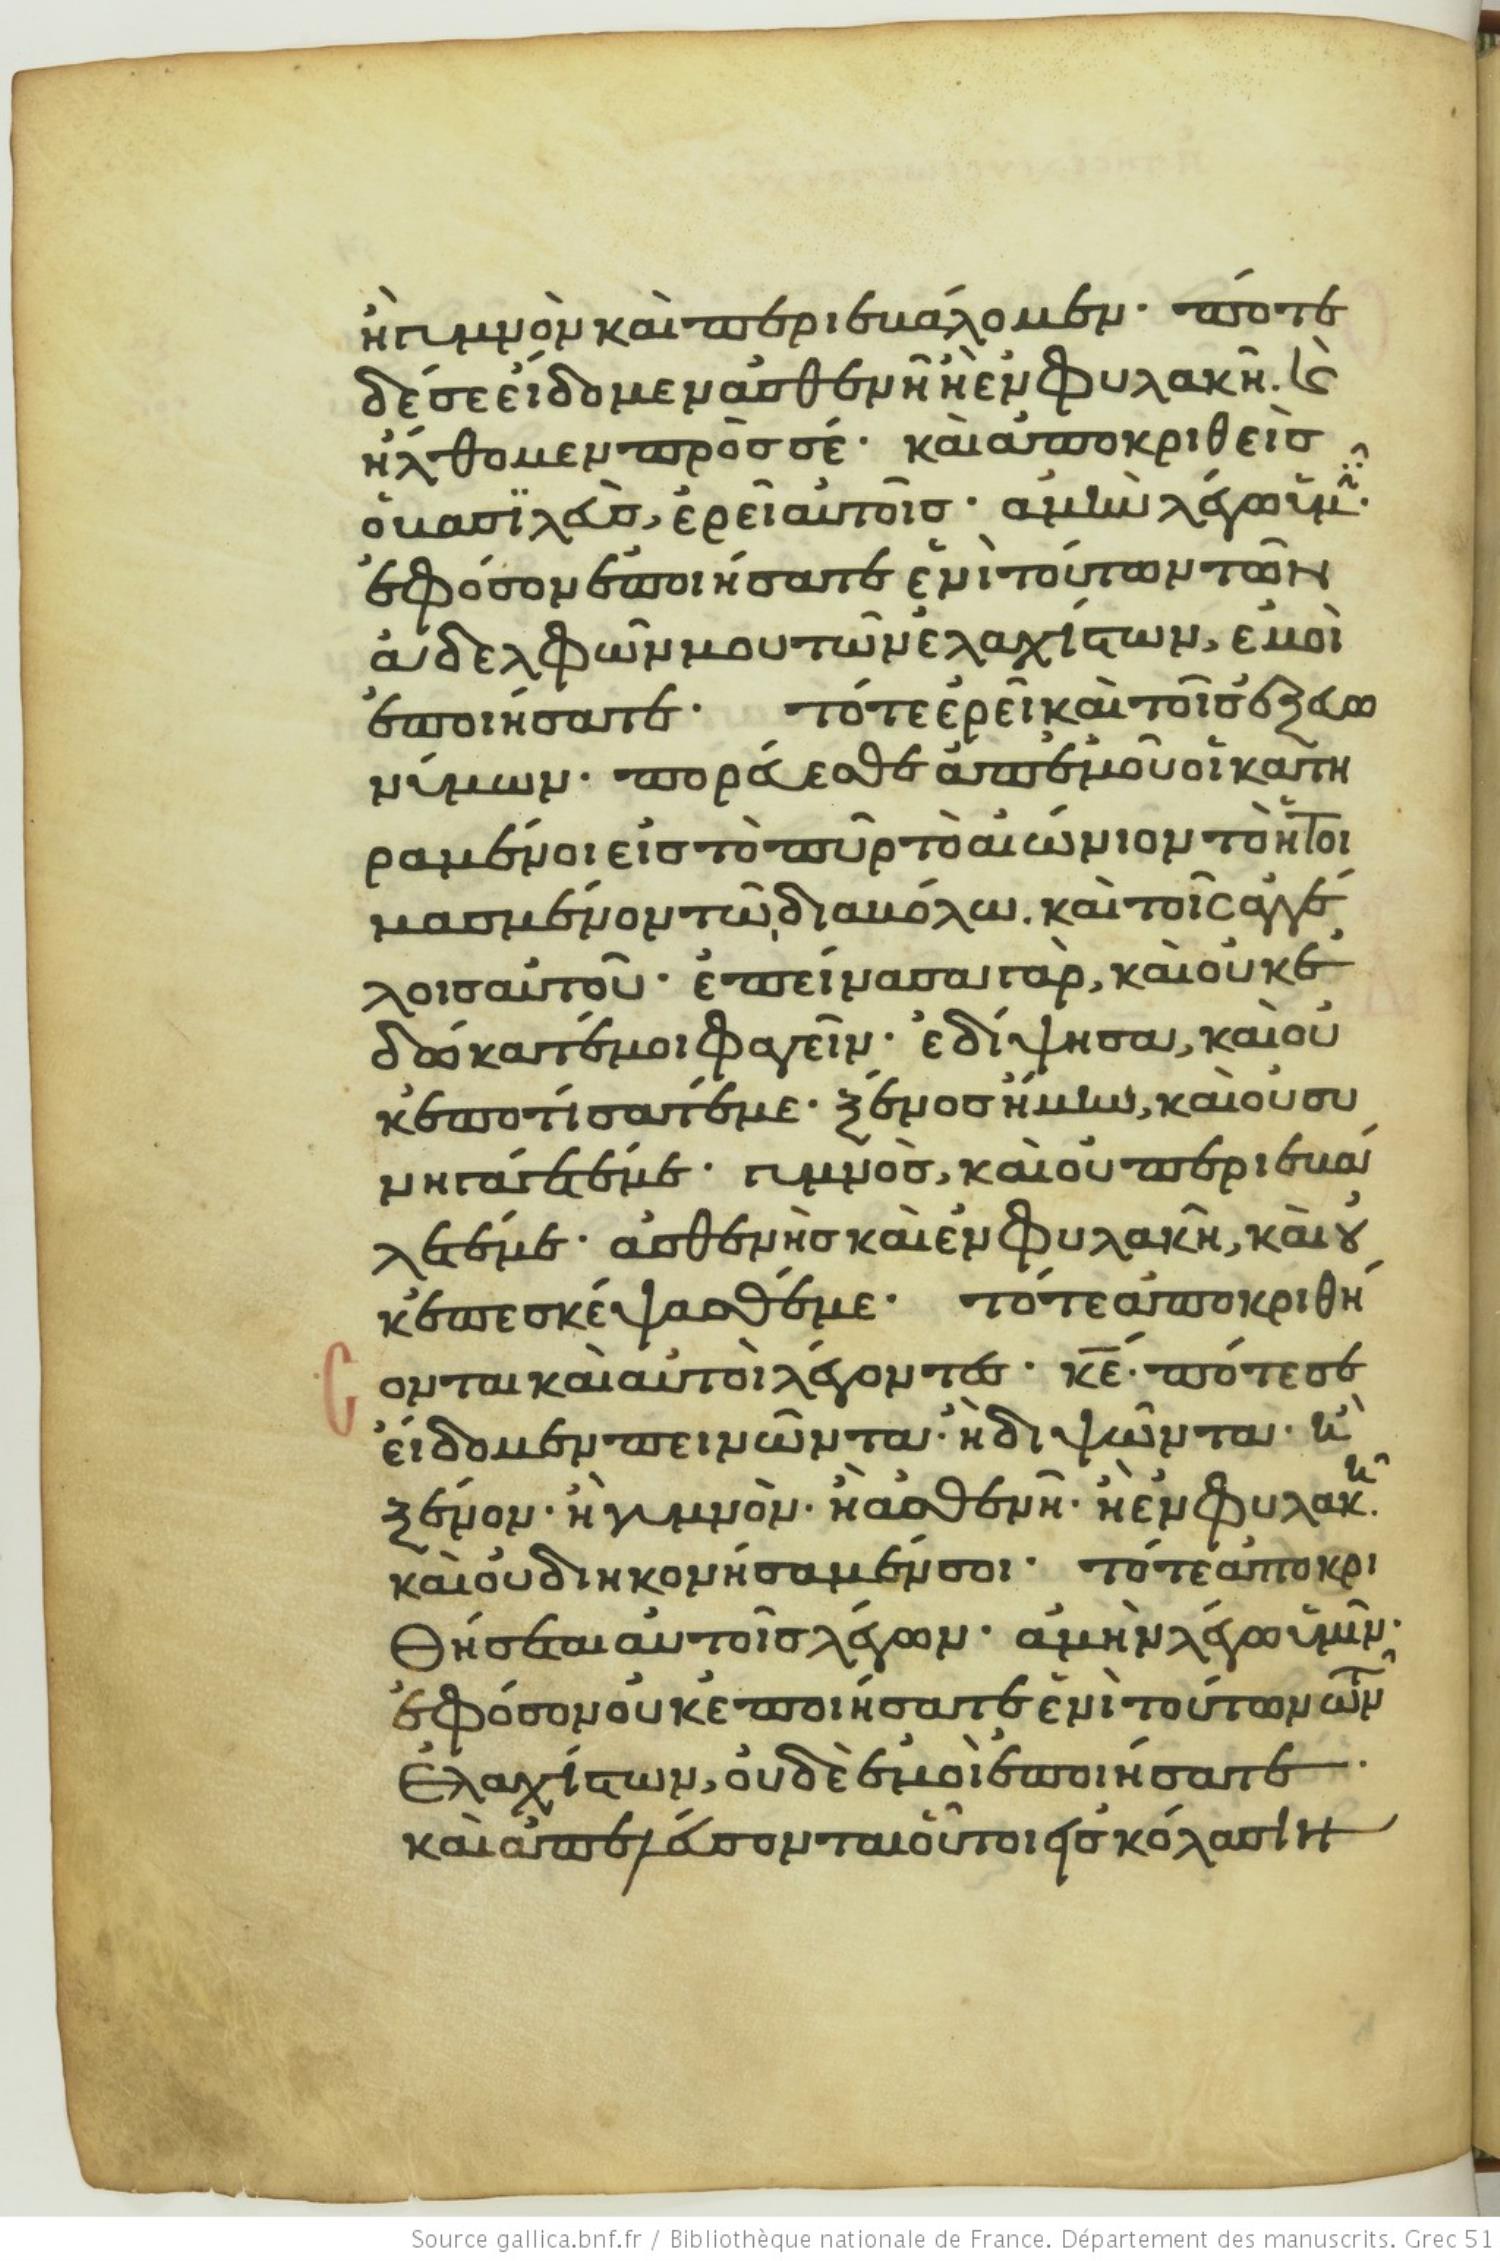 ἢ γυμνὸν καὶ περιεβάλομεν· πότε
δέ σε εἴδομεν ἀσθενῆ ἢ ἐν φυλακῆ. καὶ
ἤλθομεν πρὸς σέ· καὶ ἀποκριθεὶς
ὁ βασιλεὺς, ἐρεῖ αὐτοῖς· ἀμὴν λέγω ὑμῖν·
ἐφ' ὅσον ἐποιήσατε ἑνὶ τούτων τῶν
ἀδελφῶν μου τῶν ἐλαχίστων, ἐμοὶ
ἐποιήσατε· τότε ἐρεῖ καὶ τοῖς ἐξ εὐω
νύμων· πορεύεσθε ἀπ' ἐμοῦ οἱ κατη
ραμένοι εἰς τὸ πῦρ τὸ αἰώνιον τὸ ἡτοι
μασμένον τῶ διαβόλω. καὶ τοῖς ἀγγέ
λοις αὐτοῦ· ἐπείνασα γὰρ, καὶ οὐκ ἐ
δώκατέ μοι φαγεῖν· ἐδίψησα, καὶ οὐ
κ ἐποτίσατέ με· ξένος ἤμην, καὶ οὐ συ
νηγάγετέ με· γυμνὸς, καὶ οὐ περιεβά
λετέ με· ἀσθενὴς καὶ ἐν φυλακῆ, καὶ οὐ
κ ἐπεσκέψασθέ με· τότε ἀποκριθή
σονται καὶ αὐτοὶ λέγοντες· κε̄· πότε σε
εἴδομεν πεινῶντα· ἢ διψῶντα· ἢ
ξένον· ἢ γυμνὸν· ἢ ἀσθενῆ· ἢ ἐν φυλακῆ.
καὶ οὐ διηκονήσαμέν σοι· τότε ἀποκρι
θήσεται αὐτοῖς λέγων· ἀμὴν λέγω ὑμῖν·
ἐφ' ὅσον οὐκ ἐποιήσατε ἑνὶ τούτων τῶν
ἐλαχίστων, οὐδὲ ἐμοὶ ἐποιήσατε·
καὶ ἀπελεύσονται οὗτοι εἰς κόλασιν
Source gallica.bnf.fr / Bibliothèque nationale de France. Département des manuscrits. Grec 51